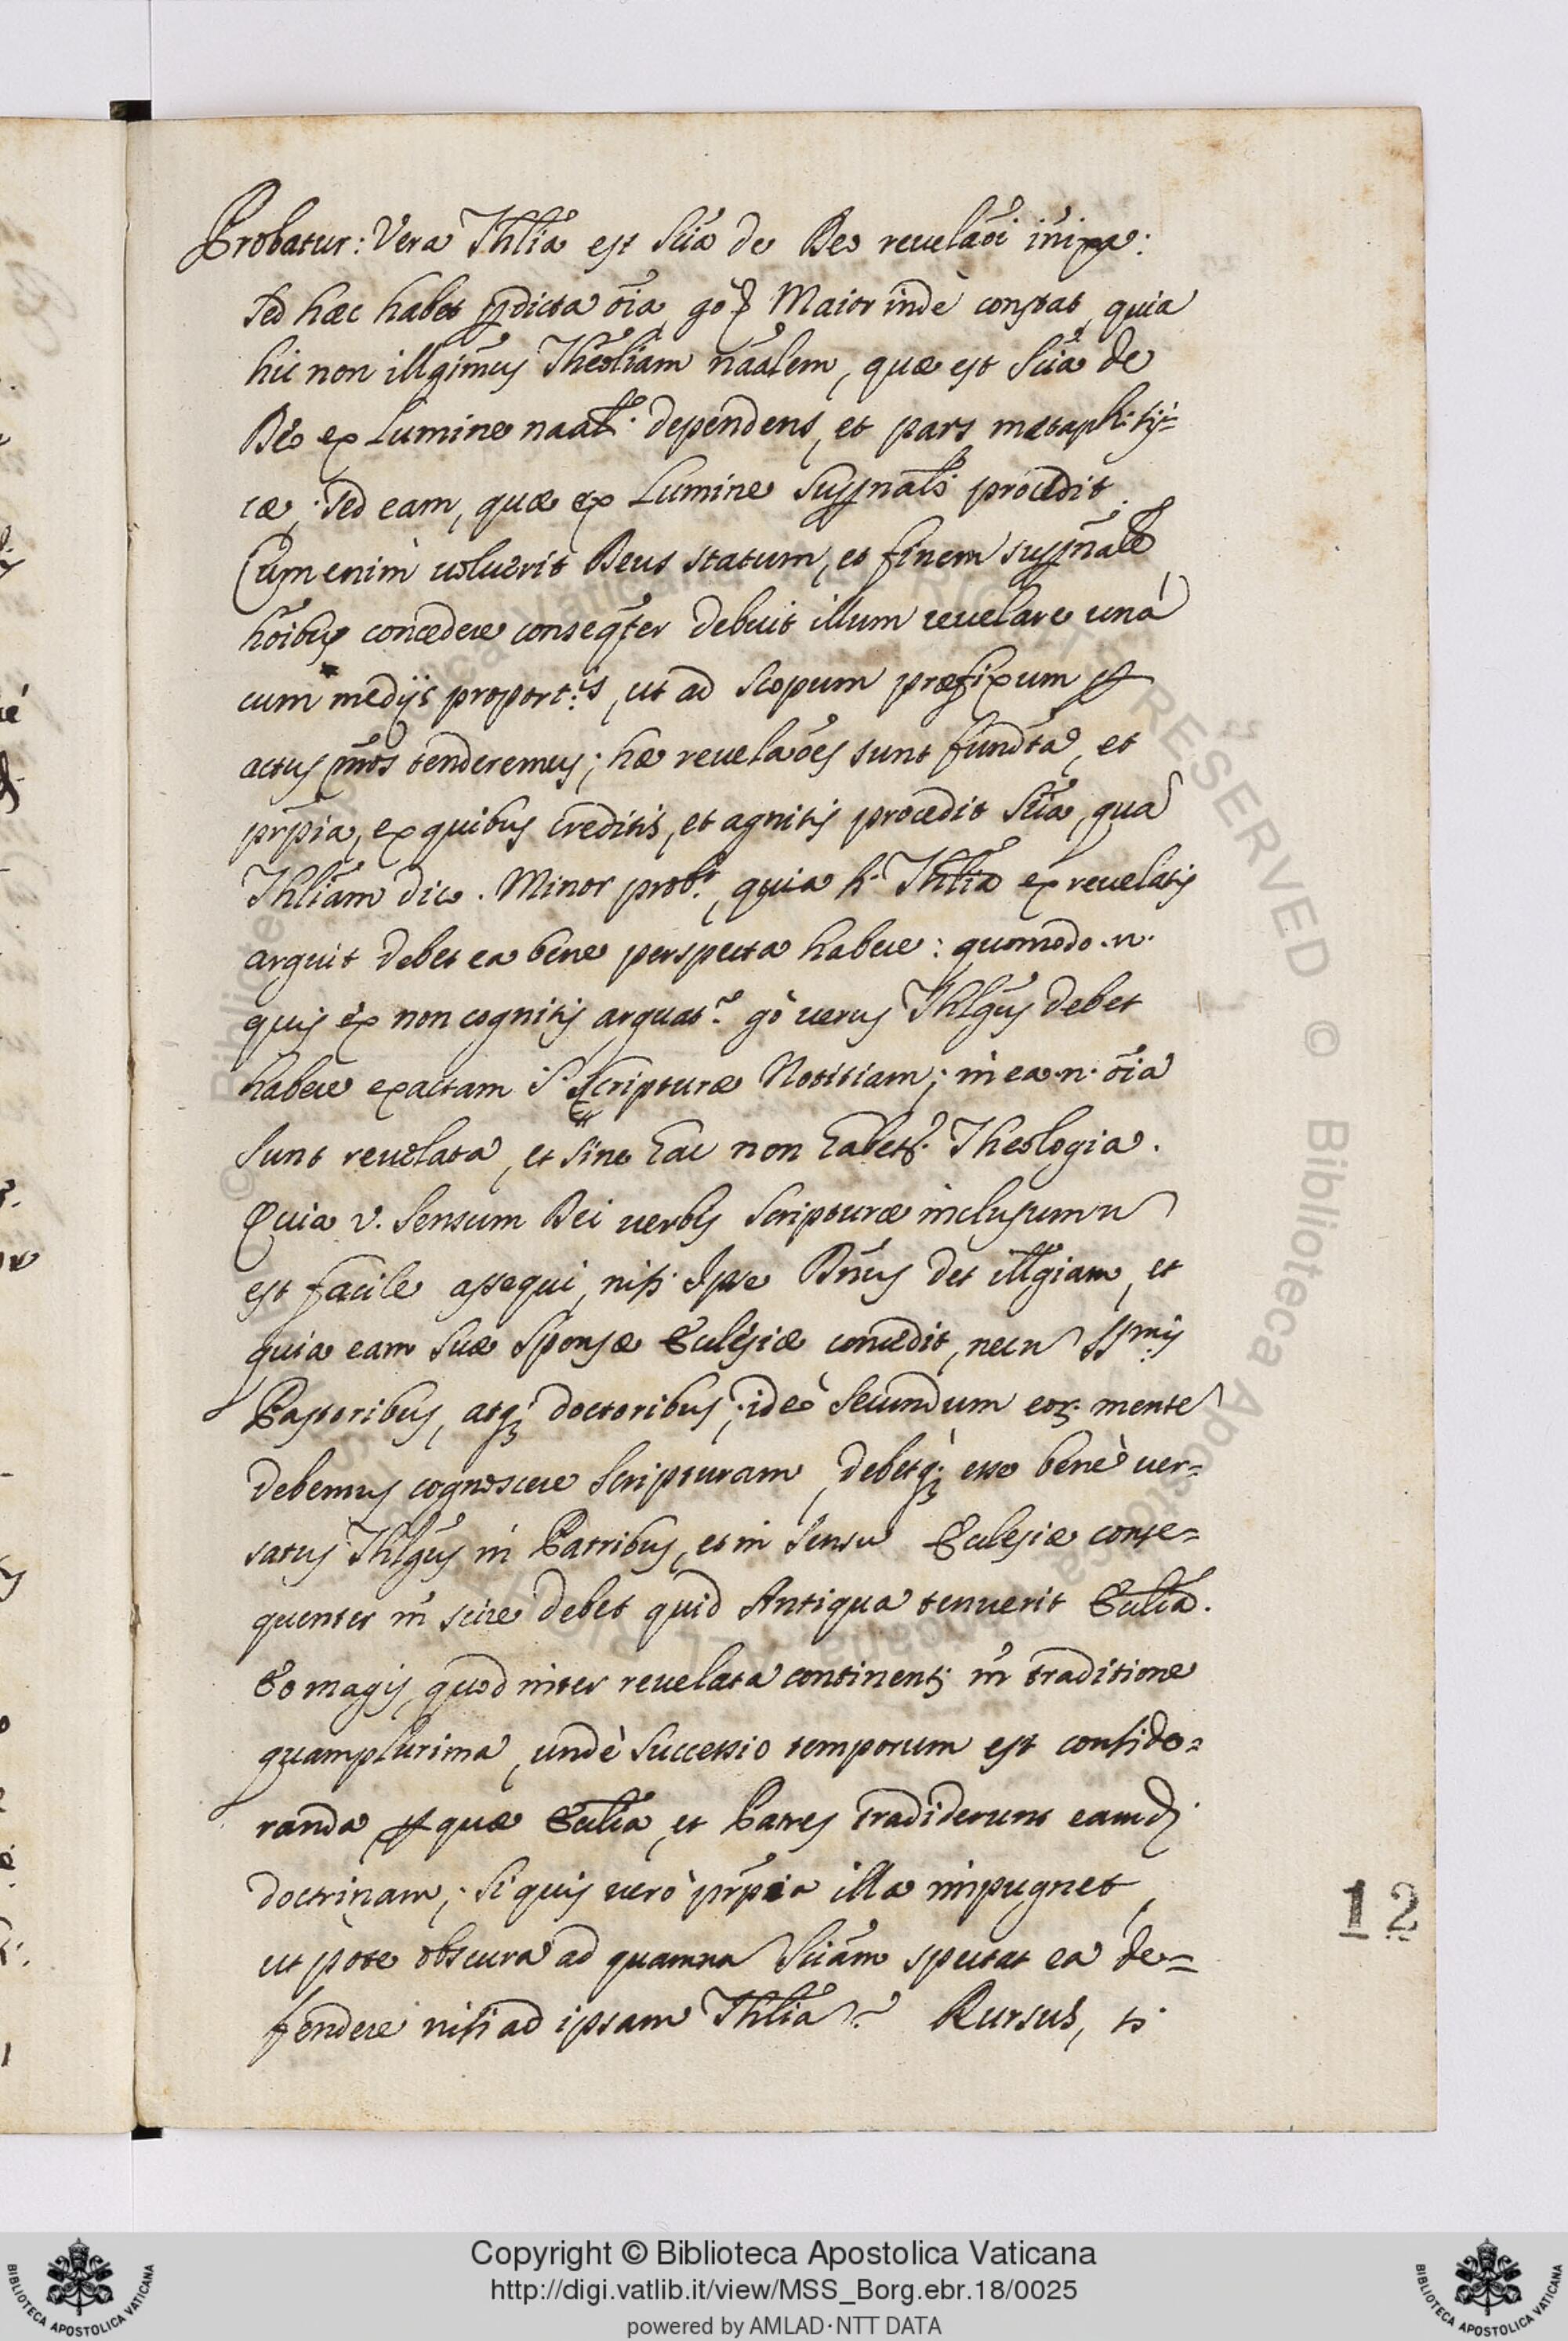 Probatur: Vera Thlia est Scia de Deo reuelãoi inixa:
sed hæc habet prædicta oia, gò & Maior inde constat, quia
hic non illgimus Theoliam naalem, quæ est Scia de
Deo ex Lumine naali dependens, et pars metaphisi=
cæ; sed eam, quæ ex Lumine supnali procedit.
Cum enim uoluerit Deus statum, et finem supnale
hoibus concedere conseqter debuit illum reuelare unà
cum medijs proport:is, ut ad scopum præfixum per
actus nros tenderemus; hæ reuelaoes sunt fundta, et
prpia, ex quibus creditis, et agnitis procedit Scia, qua
Thliam dico. Minor probr, quia h. Thlia ex reuelatis
arguit debet ea bene perspecta habere: quomodo .n.
quis ex non cognitis arguat? gò uerus Thlgus debet
habere exactam S. Scripturæ Notitiam; in ea .n. oia
sunt reuelata, et sine hac non habetr. Theologia.
Quia v. sensum Dei uerbis scripturæ inclusum n
est facile assequi, nisi Ipse Dnus det illgiam, et
quia eam suæ Sponsæ Eclesiæ concedit, nec n SSmis
Pastoribus, atq; doctoribus; ideò secundum eor. mente
debemus cognoscere scripturam, debetq; esse benè uer=
satus Thlgus in Patribus, et in sensu Eclesiæ conse=
quenter in scire debet quid Antiqua tenuerit Eclia.
Eo magis quod inter reuelata continentr in traditione
quamplurima, undè successio temporum est conside=
randa per quæ Eclia, et Patres tradiderunt eamd.
doctrinam; si quis uerò prpia illa impugnet,
ut pote obscura ad quamna Sciam spectat ea de=
fendere nisi ad ipsam Thlia? Rursus, si
12
© Biblioteca Apostolica Vaticana ALL RIGHTS RESERVED
Copyright © Biblioteca Apostolica Vaticana
http://digi.vatlib.it/view/MSS_Borg.ebr.18/0025
powered by AMLAD·NTT DATA
BIBLIOTECA APOSTOLICA VATICANA
BIBLIOTECA APOSTOLICA VATICANA